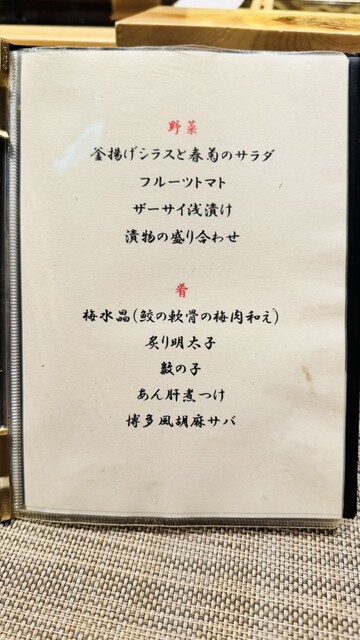 野菜
釜揚げシラスと春菊のサラダ
フルーツトマト
ザーサイ浅漬け
漬物の盛り合わせ
肴
梅水晶(鮫の軟骨の梅肉和え)
炙り明太子
数の子
あん肝煮つけ
博多風胡麻サバ